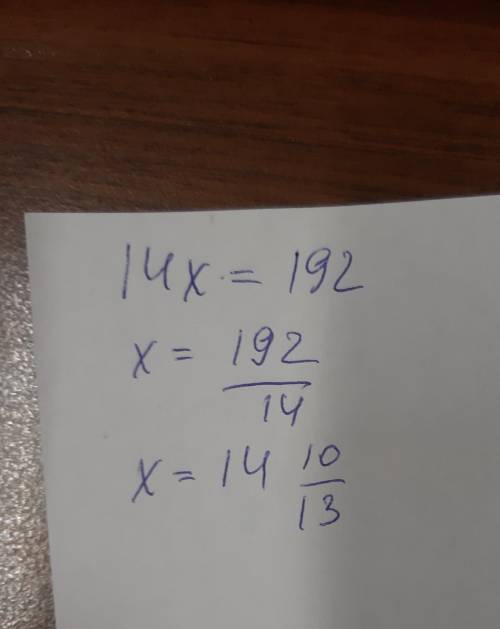 14x = 192
x = 192/14
x = 14 10/13